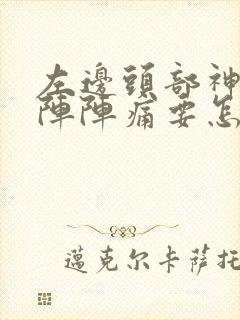 左邊頭部神
陣陣痛要怎
邁克尔卡薩托